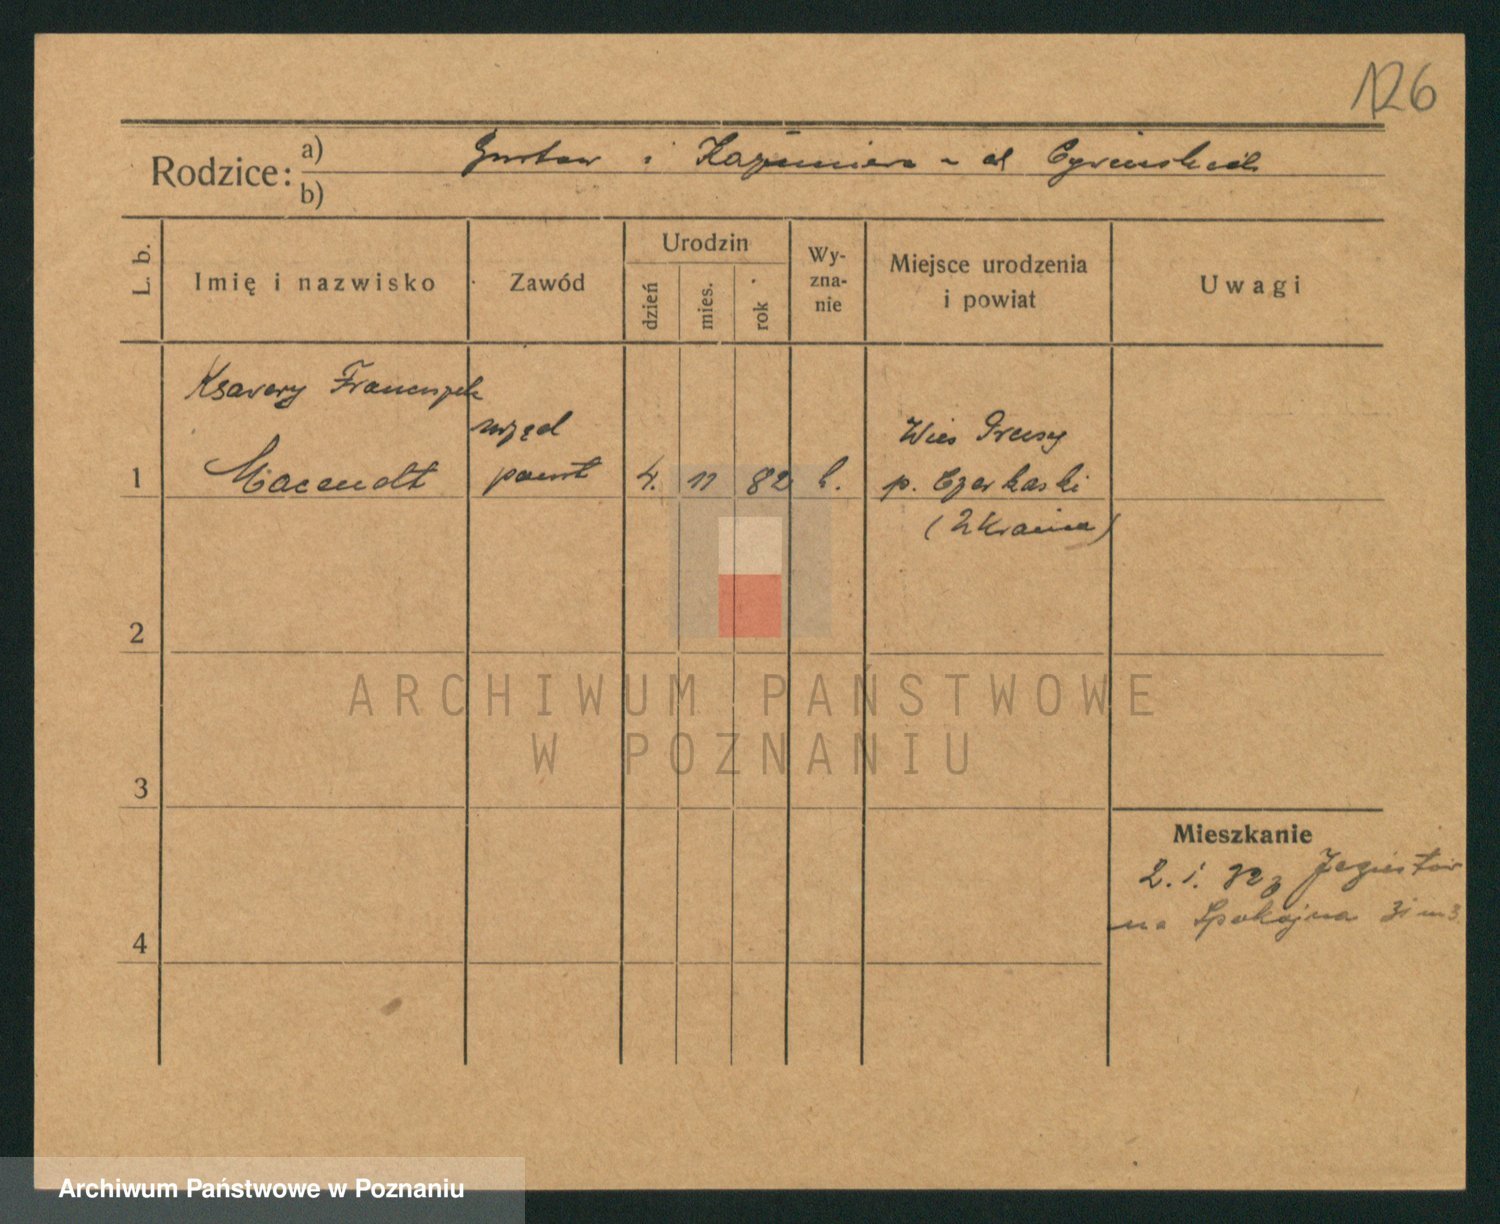 126
Rodzice: a) Gustaw i Kazimiera - d
b)
L. b.
Imię i nazwisko
Zawód
Urodzin
dzień
mies.
rok
Wy-
zna-
nie
Miejsce urodzenia
i powiat
Uwagi
Ksawery Franciszek
urzęd
Wieś
1
państ 4. 11 82 k. p. Czerkaski
(Ukraina)
2
ARCHIWUM PAŃSTWOWE
W POZNANIU
3
Mieszkanie
2. 1. 32 z
na Spokojna 31 m 3
4
Archiwum Państwowe w Poznaniu